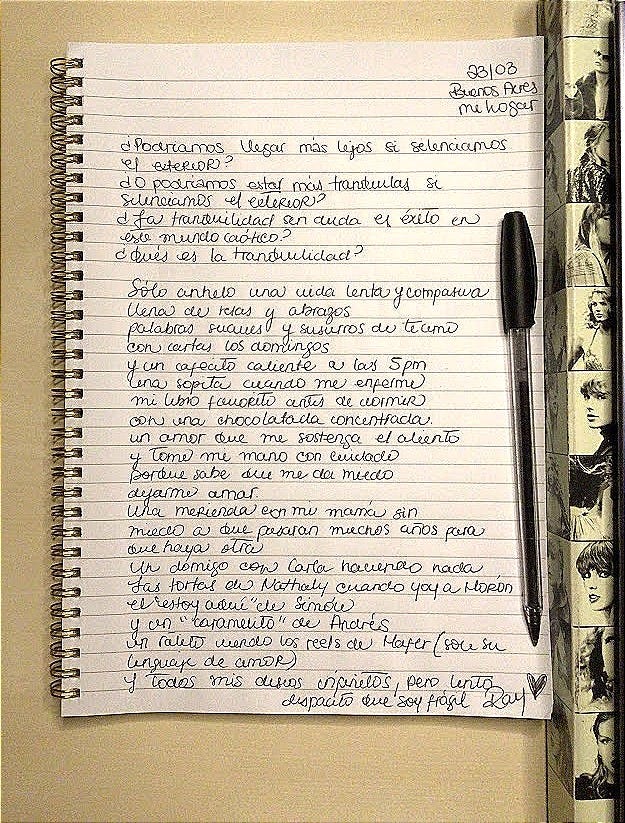 23/03
Buenos Aires
mi hogar
¿Podríamos llegar más lejos si selenciamos
el exterior?
¿O podríamos estar más tranquilas si
silenciamos el exterior?
¿La tranquilidad sin duda es éxito en
este mundo caótico?
¿Qués es la tranquilidad?
Sólo anhelo una vida lenta y compasiva
llena de risas y abrazos
palabras suaves y susurros de te amo
con cartas los domingos
y un cafecito caliente a las 5pm
una sopita cuando me enferme
mi libro favorito antes de dormir
con una chocolatada concentrada.
un amor que me sostenga el aliento
y tome mi mano con cuidado
porque sabe que me da miedo
dejarme amar
Una merienda con mi mamá sin
miedo a que pasaran muchos años para
que haya otra
Un domigo con Carla haciendo nada
Las tortas de Nathaly cuando voy a Morón
el "estoy aquí" de Simón
y un "caramelito" de Andrés
un ratito viendo los reels de Mafer (son su
lenguaje de amor)
y todos mis deseos infinitos, pero lento
dispacito que soy frágil Ray